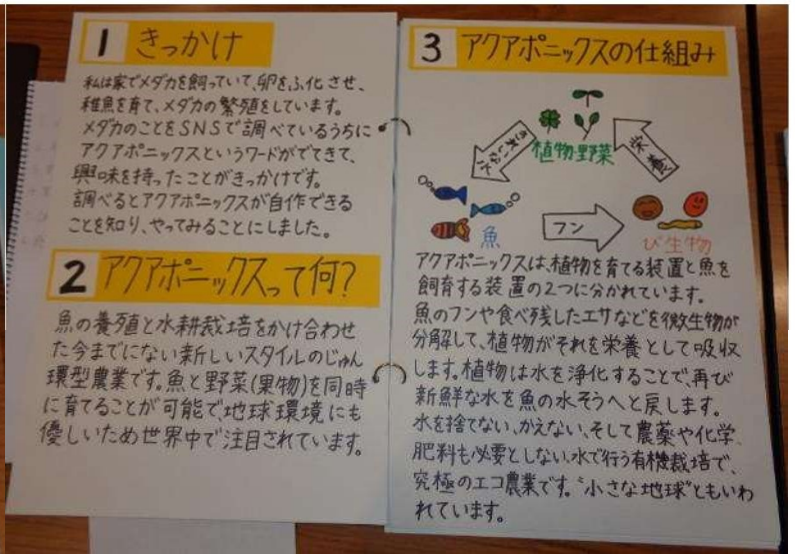 1 きっかけ
私は家でメダカを飼っていて、卵をふ化させ、
稚魚を育て、メダカの繁殖をしています。
メダカのことをSNSで調べているうちに
アクアポニックスというワードがでてきて、
興味を持ったことがきっかけです。
調べるとアクアポニックスが自作できる
ことを知り、やってみることにしました。
2 アクアポニックスって何?
魚の養殖と水耕栽培をかけ合わせ
た今までにない新しいスタイルのじゅん
環型農業です。魚と野菜(果物)を同時
に育てることが可能で地球環境にも
優しいため世界中で注目されています。
3 アクアポニックスの仕組み
植物・野菜
きれいな水
栄養
魚
フン
び生物
アクアポニックスは、植物を育てる装置と魚を
飼育する装置の2つに分かれています。
魚のフンや食べ残したエサなどを微生物が
分解して、植物がそれを栄養として吸収
します。植物は水を浄化することで、再び
新鮮な水を魚の水そうへと戻します。
水を捨てない、かえない、そして農薬や化学
肥料も必要としない水で行う有機栽培で、
究極のエコ農業です。“小さな地球”ともいわ
れています。